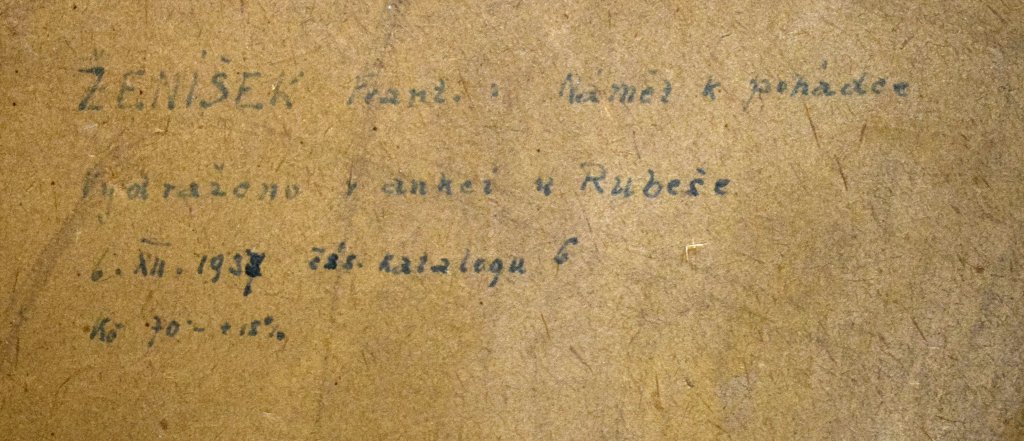 ŽENÍŠEK Frant.: Námět k pohádce
Vydraženo v aukci u Rubeše
6. XII. 1937 čís. katalogu 6
Kč 70·– + 15%